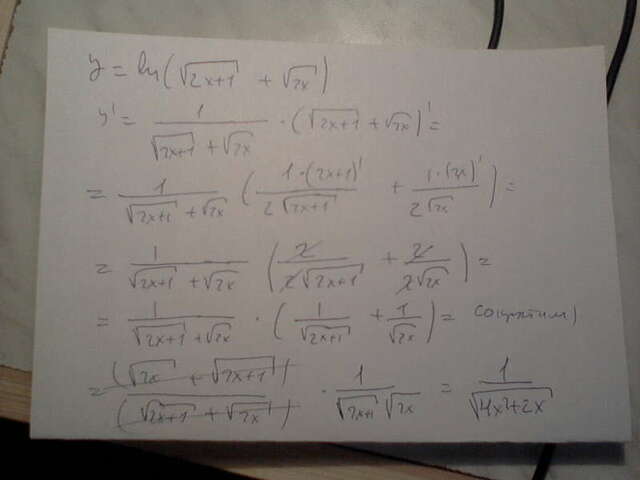 y = ln(√(2x+1) + √(2x))
y' = 1/(√(2x+1) + √(2x)) · (√(2x+1) + √(2x))' =
= 1/(√(2x+1) + √(2x)) (1·(2x+1)'/(2√(2x+1)) + 1·(2x)'/(2√(2x))) =
= 1/(√(2x+1) + √(2x)) (2/(2√(2x+1)) + 2/(2√(2x))) =
= 1/(√(2x+1) + √(2x)) · (1/√(2x+1) + 1/√(2x)) = сократим)
= (√(2x) + √(2x+1))/(√(2x+1) + √(2x)) · 1/(√(2x+1) √(2x)) = 1/√(4x²+2x)